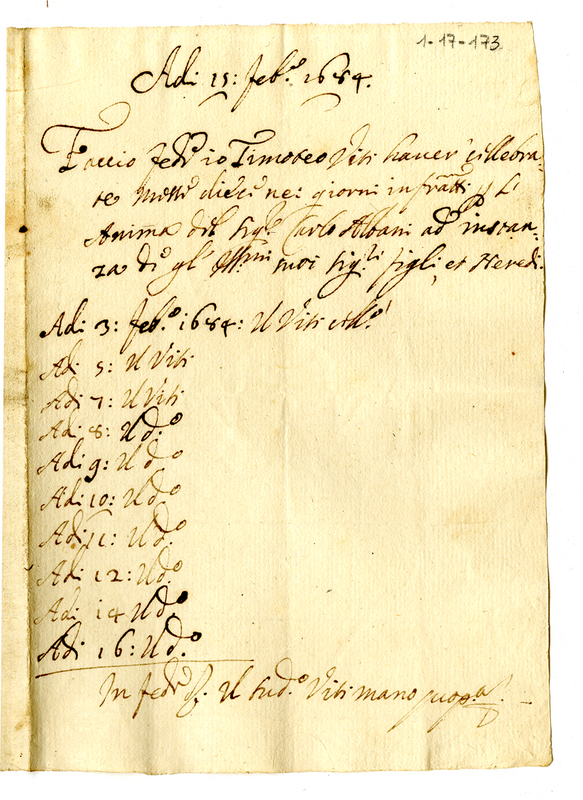 1-17-173
Adi 15: feb.º 1684.
Faccio fede io Timoteo Viti haver cellebra-
te messe dieci nei giorni infratti p L'
Anima del Sig.r Carlo Albani ad instan-
za di gl' Ill.mi suoi Sig.ri figli, et Heredi.
Adi 3: feb.º 1684: Il Viti
Adi 5: Il Viti
Adi 7: Il Viti
Adi 8: Il d.º
Adi 9: Il d.º
Adi 10: Il d.º
Adi 11: Il d.º
Adi 12: Il d.º
Adi 14 Il d.º
Adi 16: Il d.º
In fede Il sud.º Viti mano